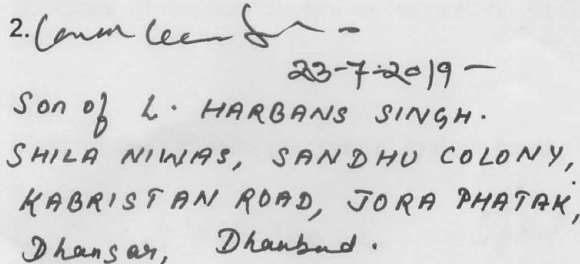 2.
23-7-2019 -
Son of L. HARBANS SINGH.
SHILA NIWAS, SANDHU COLONY,
KABRISTAN ROAD, JORA PHATAK,
Dhansar, Dhanbad.